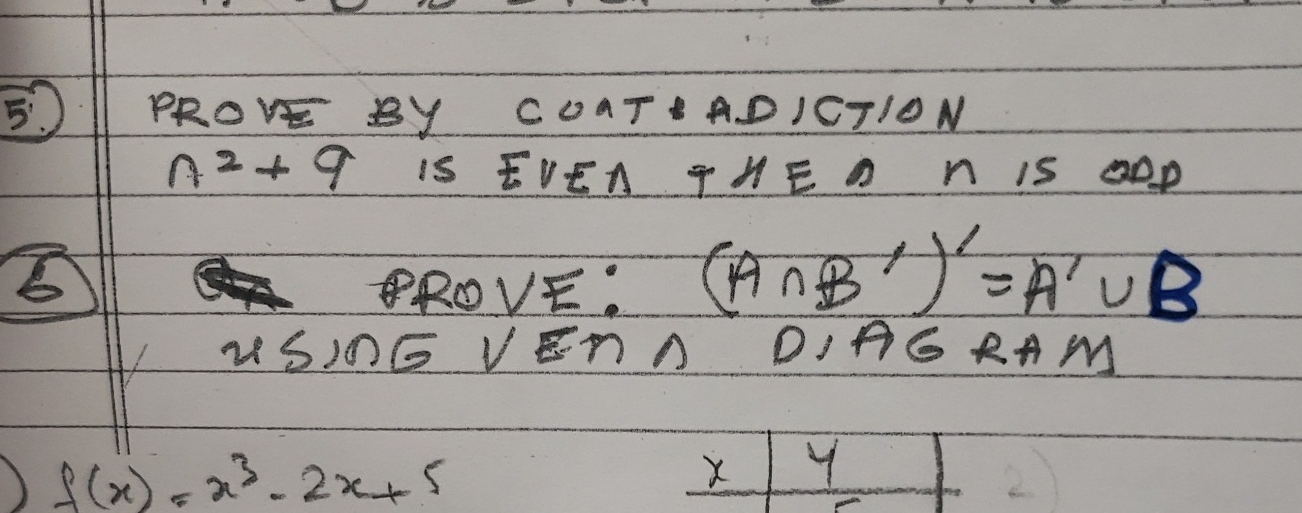 5.) PROVE BY CONTRADICTION
n² + 9 IS EVEN THEN n IS ODD
6 PROVE: (A ∩ B')' = A' ∪ B
USING VENN DIAGRAM
) f(x) = x³ - 2x + 5 x | y
2)